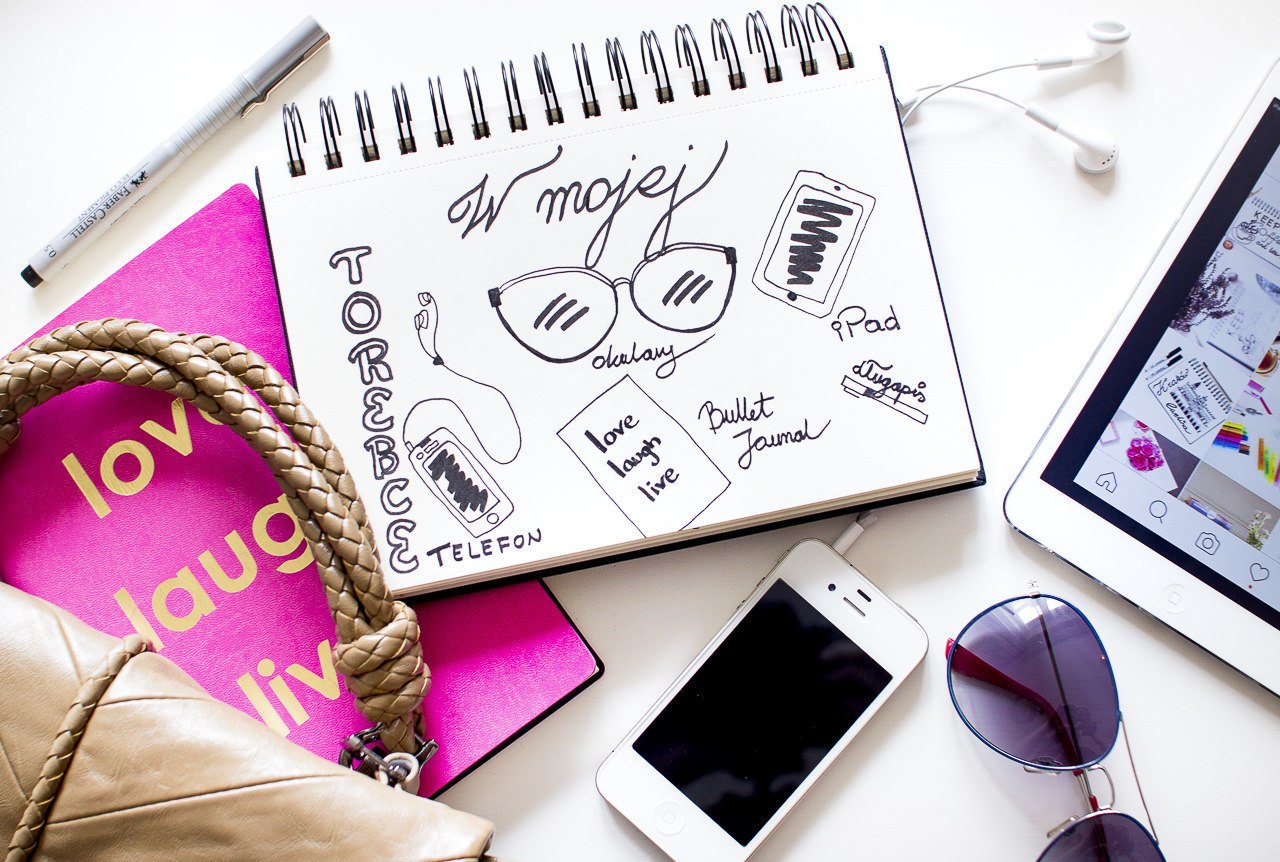 FABER-CASTELL
0.5
W mojej
TOREBCE
okulary
iPad
długopis
Bullet
Journal
love
laugh
live
TELEFON
love
laug
liv
KEEP
Kraków